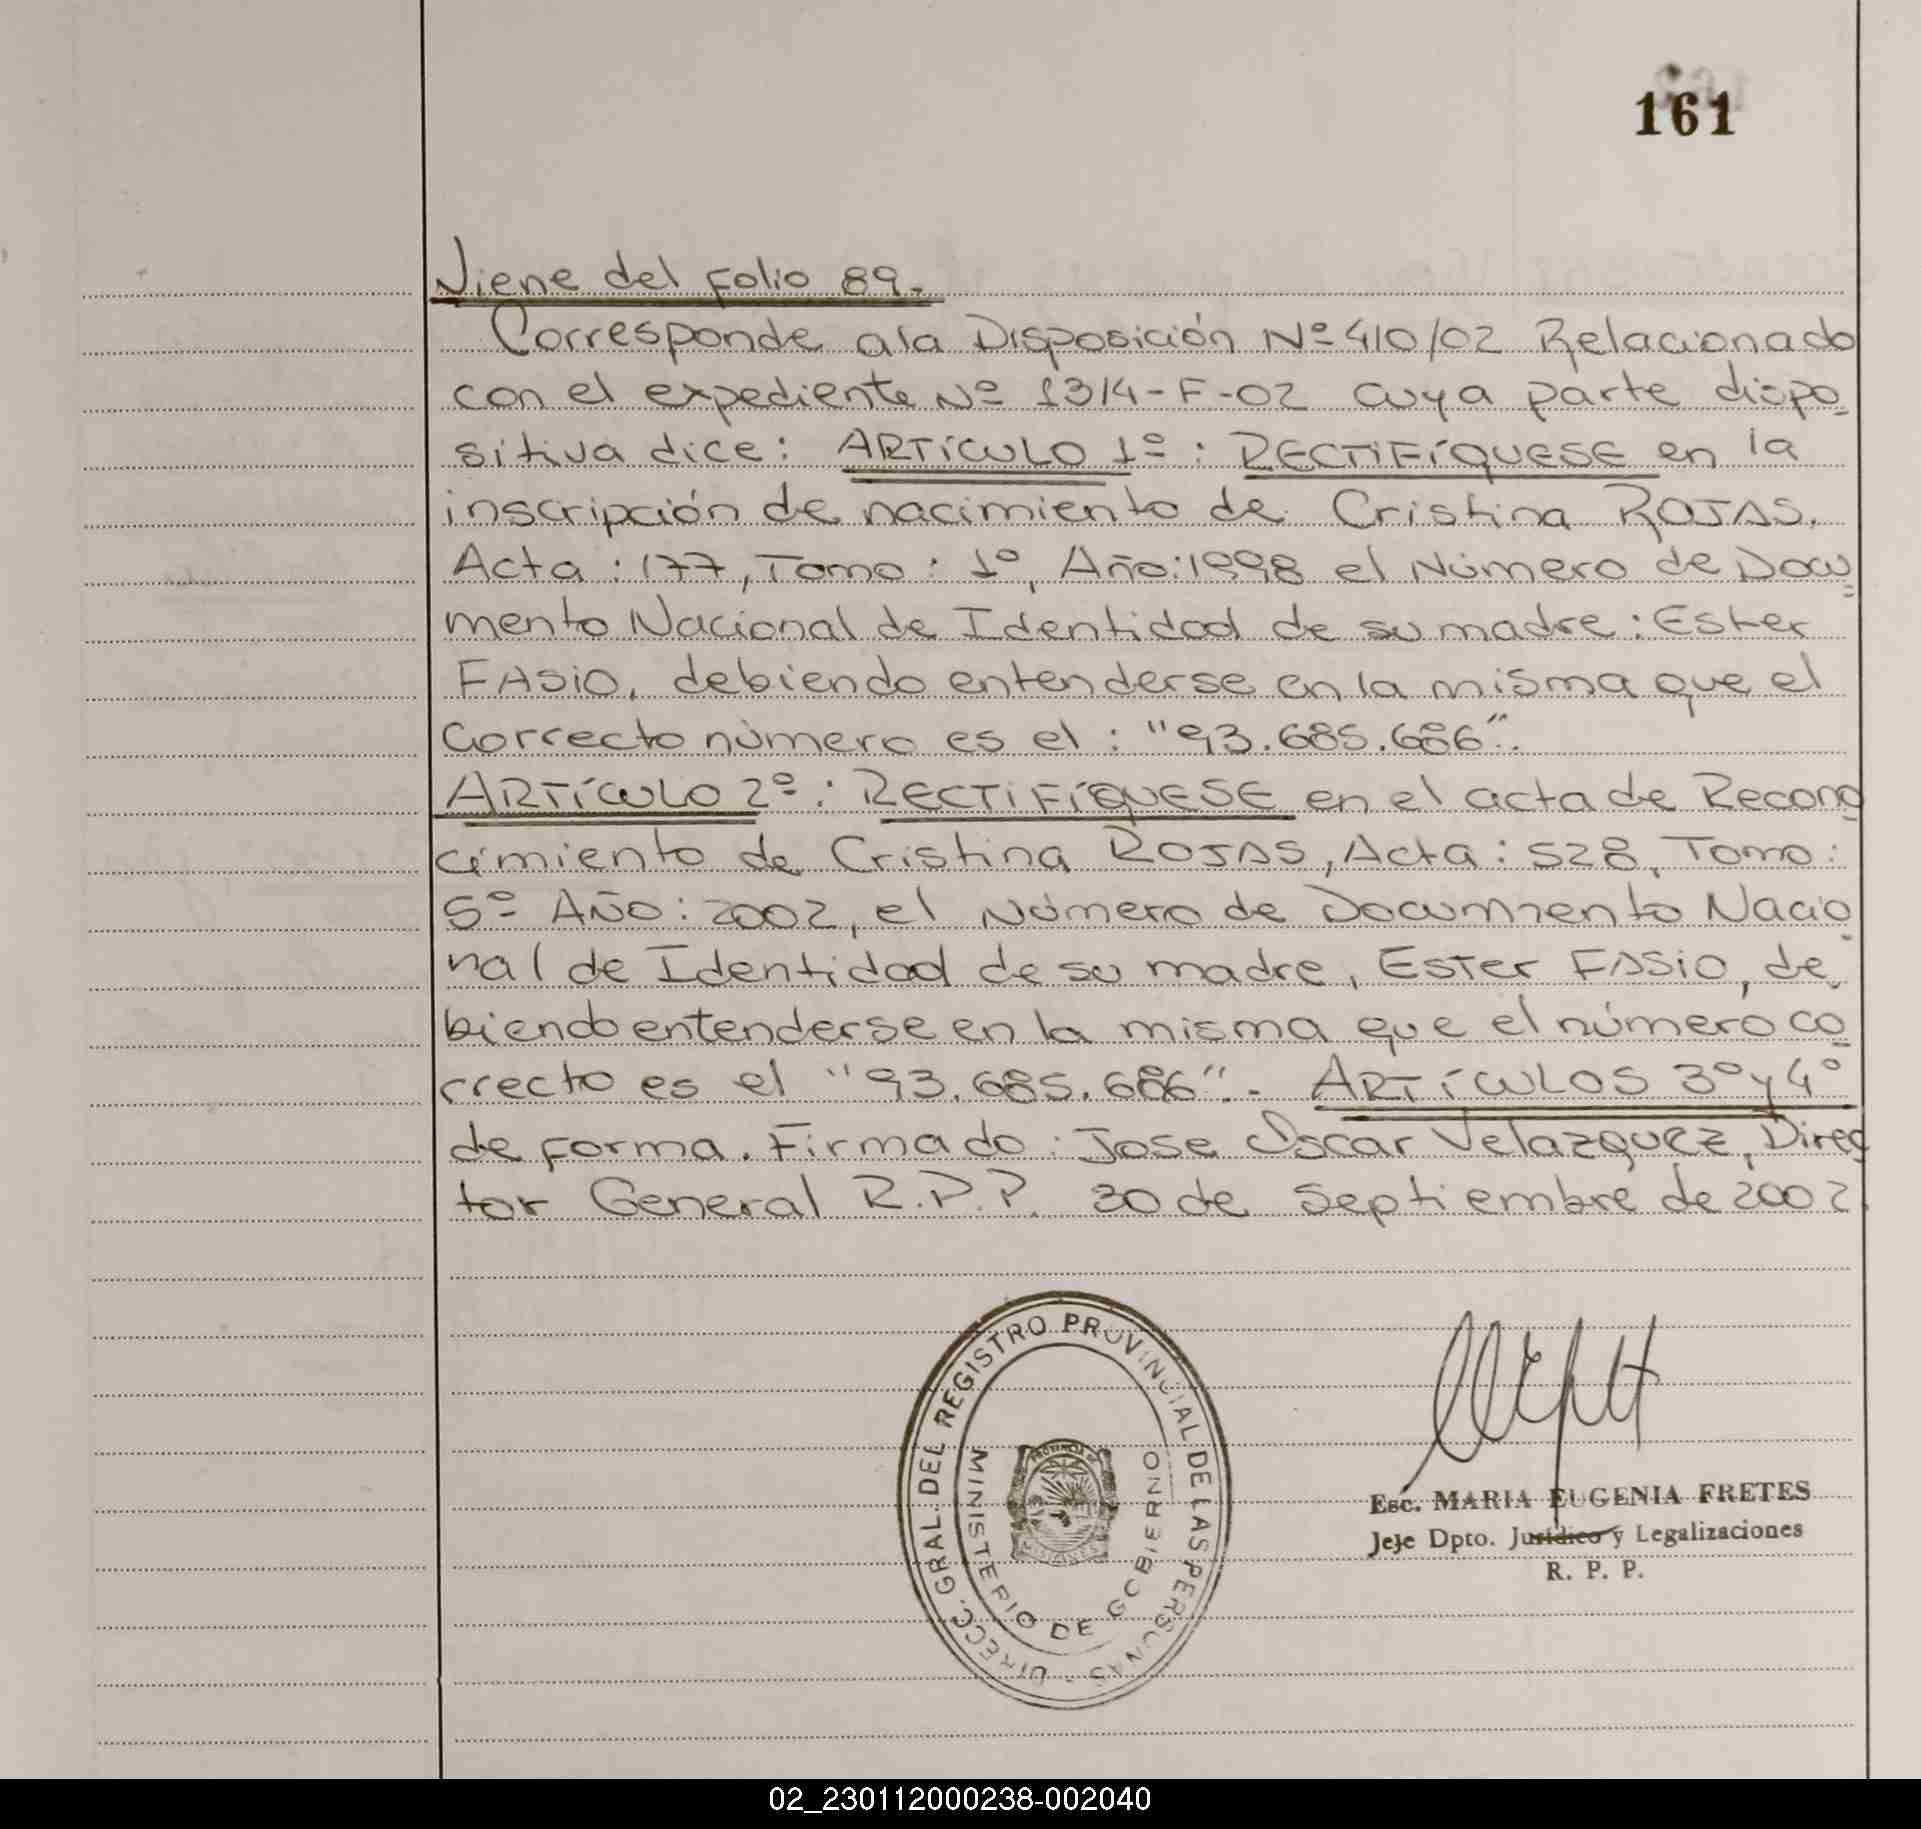 161
Viene del Folio 89.
Corresponde a la Disposición Nº 410/02 Relacionado
con el expediente Nº 1314-F-02 cuya parte dispo
sitiva dice: ARTÍCULO 1º: RECTIFÍQUESE en la
inscripción de nacimiento de Cristina ROJAS.
Acta: 177, Tomo: 1º, Año: 1998 el Número de Docu
mento Nacional de Identidad de su madre: Ester
FASIO, debiendo entenderse en la misma que el
correcto número es el: "93.685.686".
ARTÍCULO 2º: RECTIFÍQUESE en el acta de Recono
cimiento de Cristina ROJAS, Acta: 528, Tomo:
5º AÑO: 2002, el Número de Documento Nacio
nal de Identidad de su madre, Ester FASIO, de
biendo entenderse en la misma que el número co
rrecto es el "93.685.686".- ARTÍCULOS 3º y 4º
de forma. Firmado: Jose Oscar Velazquez, Direc
tor General R.P.P. 30 de Septiembre de 2002.
DIRECC. GRAL. DEL REGISTRO PROVINCIAL DE LAS PERSONAS -
MINISTERIO DE GOBIERNO
PROVINCIA DE
MISIONES
Esc. MARIA EUGENIA FRETES
Jefe Dpto. Jurídico y Legalizaciones
R. P. P.
02_230112000238-002040